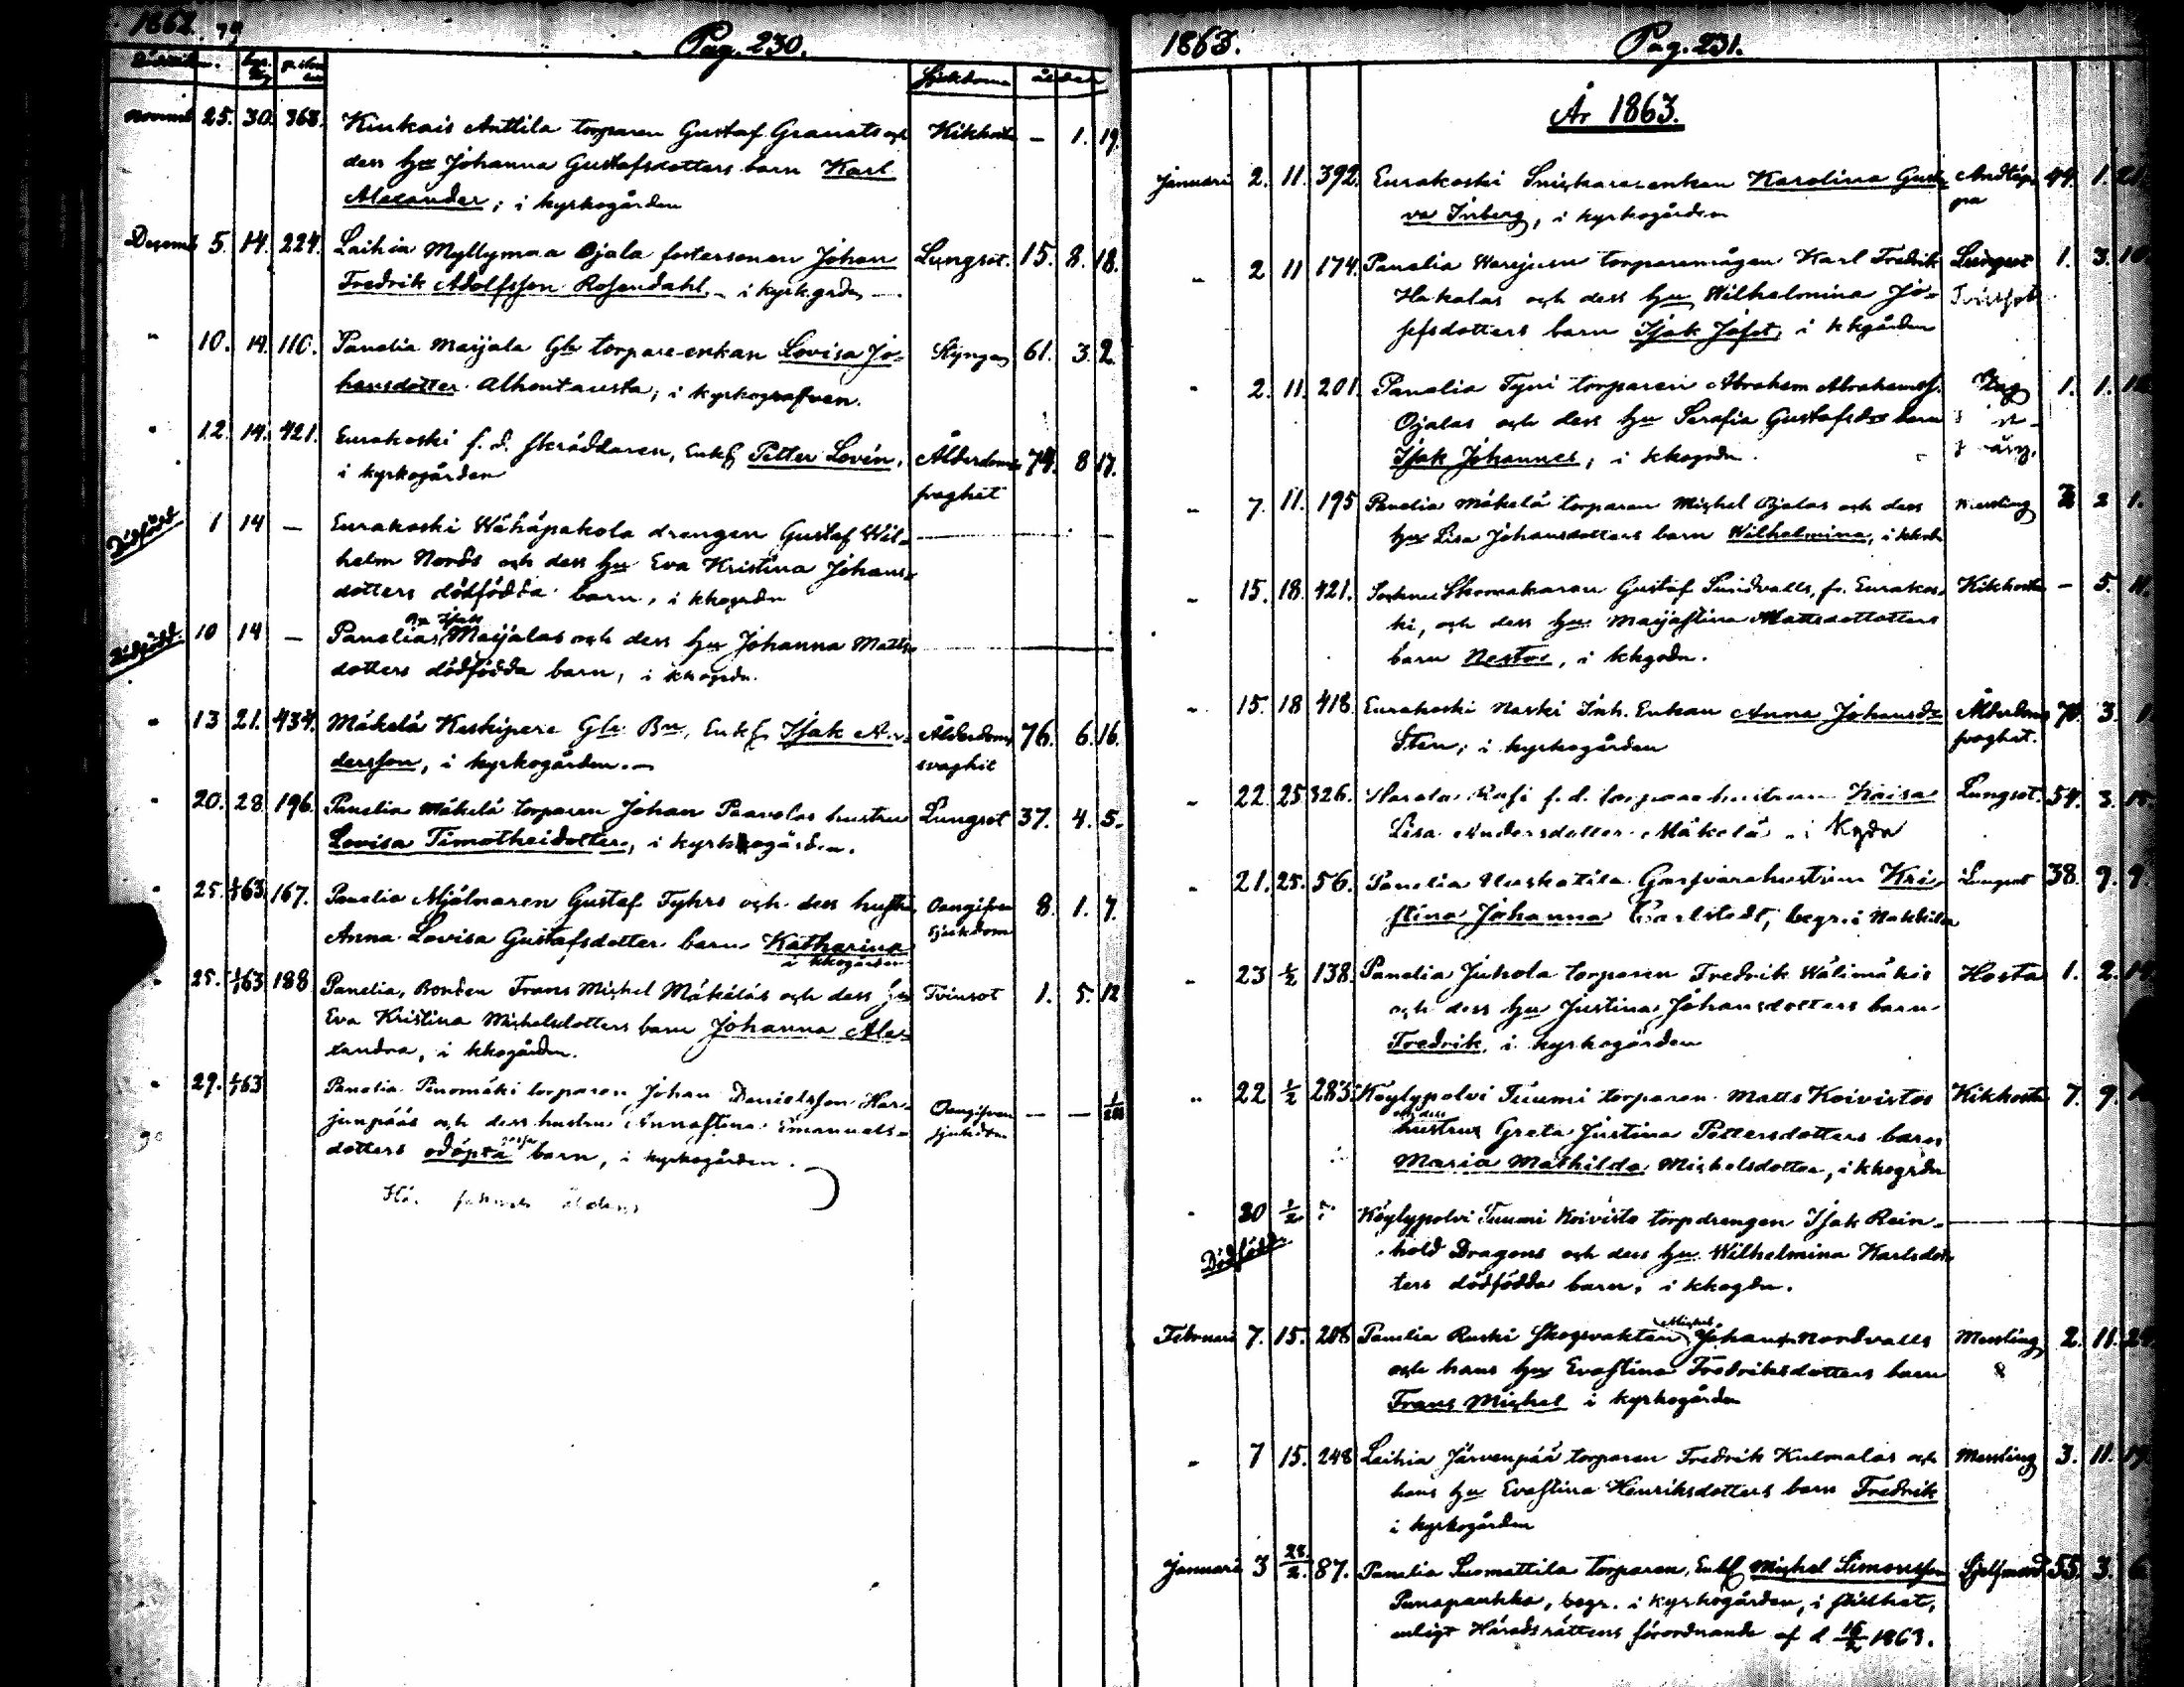 1862. 79
Pag. 230.
Sjukdom ålder
Novemb 25. 30. 368. Kiukais Anttila torparen Gustaf Granats och Kikhosta – 1. 19.
dess hu Johanna Gustafsdotters barn Karl
Alexander; i kyrkogården
Decemb 5. 14. 224. Laihia Myllymaa Ojala fostersonen Johan Lungsot. 15. 8. 18.
Fredrik Adolfsson Rosendahl – i kyrk.grdn –
" 10. 14. 110. Panelia Marjala Gla torpare-enkan Lovisa Jo- Styng 61. 3. 2.
hansdotter Alhontausta; i kyrkografven.
" 12. 14. 421. Eurakoski f. d. skräddaren, Enkf Petter Lovén, Ålderdoms 74. 8 17.
i kyrkogården svaghet
Dödfödt 1 14 – Eurakoski Wähäpakola drengen Gustaf Wil-
helm Nords och dess hu Eva Kristina Johans-
dotters dödfödda barn, i kkogrdn
Dödfödt 10 14 – Panelias Marjalas och dess hu Johanna Matts-
dotters dödfödda barn, i kkogrdn.
" 13 21. 434. Mäkelä Keskipere Gla Bn, Enkf Isak An- Ålderdoms 76. 6. 16.
dersson, i kyrkogården. – svaghet
" 20. 28. 196. Panelia Mäkelä torparen Johan Paavolas hustru Lungsot 37. 4. 5.
Lovisa Timotheidotter, i kyrkogården.
" 25. 63 167. Panelia Mjölnaren Gustaf Tyhrs och dess hustru Oangifven 8. 1. 7.
Anna Lovisa Gustafsdotter barn Katharina sjukdom
i kkogården
" 25. 63 188 Panelia, Bonden Frans Michel Mäkeläs och dess hu Tvinsot 1. 5. 12
Eva Kristina Michelsdotters barn Johanna Ale-
xandra, i kkogården.
" 29. 63 Panelia Penomäki torparen Johan Danielsson Har- Oangifven – –
junpääs och dess hustru Annastina Emanuels- sjukdom
dotters odöpta barn, i kyrkogården.
1863. Pag. 231.
År 1863.
Januari 2. 11. 392. Eurakoski Snickaresenkan Karolina Gusta- Andtäp- 49. 1. 21.
va Inberg, i kyrkogården pa
" 2 11 174. Panelia Warjusu torparemågen Karl Fredrik Lungsot 1. 3. 10.
Hakalas och dess hu Wilhelmina Jo- Tvinsot
sefsdotters barn Isak Josef, i kkgården
" 2. 11. 201. Panelia Tyni torparen Abraham Abrahamss. 1. 1.
Ojalas och dess hu Serafia Gustafsdr barn
Isak Johannes, i kkogrdn.
" 7. 11. 195 Panelia Mäkelä torparen Michel Ojalas och dess Messling 2 1.
hu Lisa Johansdotters barn Wilhelmina, i kkob
" 15. 18. 421. Sockne Skomakaren Gustaf Sundvalls, fr. Eurakos- Kikhosta – 5. 11.
ki, och dess hu Marjastina Mattsdottotters
barn Nestor, i kkgrdn.
" 15. 18 418. Eurakoski Naski Inh. Enkan Anna Johansdr Ålderdoms 70. 3.
Sten; i kyrkogården svaghet.
" 22 25 326. f. d. torparehustrun Kaisa Lungsot. 54. 3. 15.
Lisa Andersdotter Mäkelä – i Kgrdn
" 21. 25. 56. Panelia Uuskatila Garfvarehustrun Kri- Lungsot 38. 9. 9.
stina Johanna Carlstedt, begr. i Nakkila
" 23 ½ 138. Panelia Juhola torparen Fredrik Wälimäkis Hosta 1. 2. 14.
och dess hu Justina Johansdotters barn
Fredrik, i kyrkogården
" 22 ½ 283. Köylypolvi Tuumi torparen Matts Koivistos Kikhosta 7. 9.
och dess
hustrus Greta Justina Pettersdotters barn
Maria Mathilda Michelsdotter, i kkogrdn
" 30 ½ Köylypolvi Tuumi Koivisto torpdrengen Isak Rein-
Dödfödt hold Dragons och dess hu Wilhelmina Karlsdot-
ters dödfödda barn, i kkogdn.
Februari 7. 15. 208 Panelia Ruski Skogsvaktan Johan Nordvalls Messling 2. 11. 24.
Michel
och hans hu Evastina Fredriksdotters barn
Frans Michel i kyrkogården
" 7 15. 248 Laihia Järvenpää torparen Fredrik Kulmalas och Messling 3. 11. 19.
hans hu Evastina Henriksdotters barn Fredrik
i kyrkogården
Januari 3 28/2. 87. Panelia Suomattila torparen, Enkf Michel Simonsson Sjelfmord 55. 3. 6
Punapaukka, begr. i kyrkogården, i stillhet,
enligt Häradsrättens förordnande af d 16/2 1863.